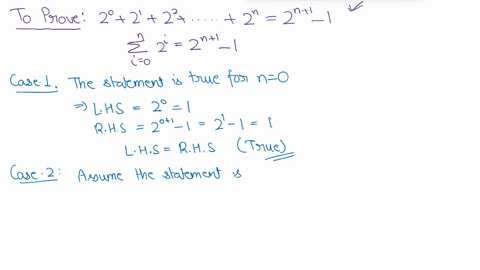 To Prove: 2⁰ + 2¹ + 2² + ..... + 2ⁿ = 2ⁿ⁺¹ – 1 ✓
∑ⁿᵢ₌₀ 2ⁱ = 2ⁿ⁺¹ – 1
Case 1. The statement is true for n=0
⇒ L.H.S = 2⁰ = 1
R.H.S = 2⁰⁺¹ – 1 = 2¹ – 1 = 1
L.H.S = R.H.S (True)
Case 2: Assume the statement is